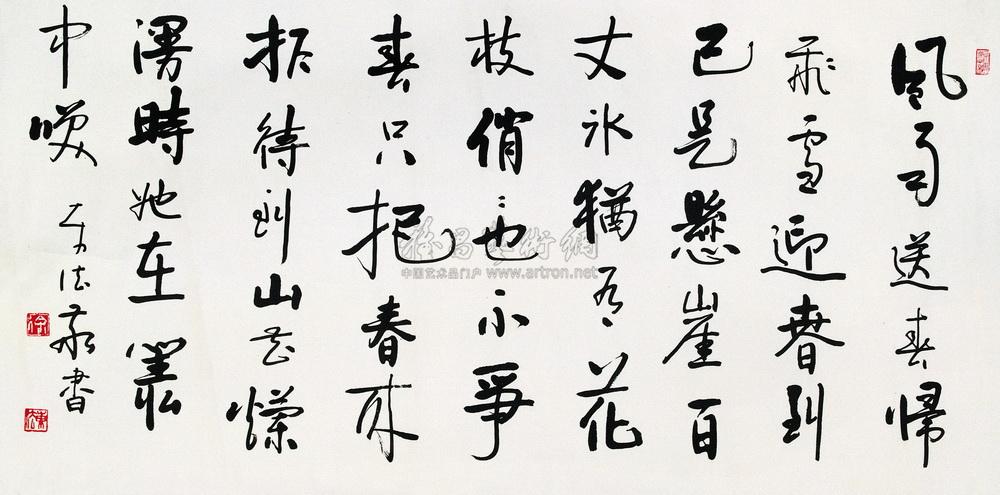 風雨送春歸
飛雪迎春到
已是懸崖百
丈冰猶有花
枝俏〻也不爭
春只把春來
报待到山花爛
漫時她在叢
中咲
書
雅昌藝術網
中国艺术品门户 www.artron.net